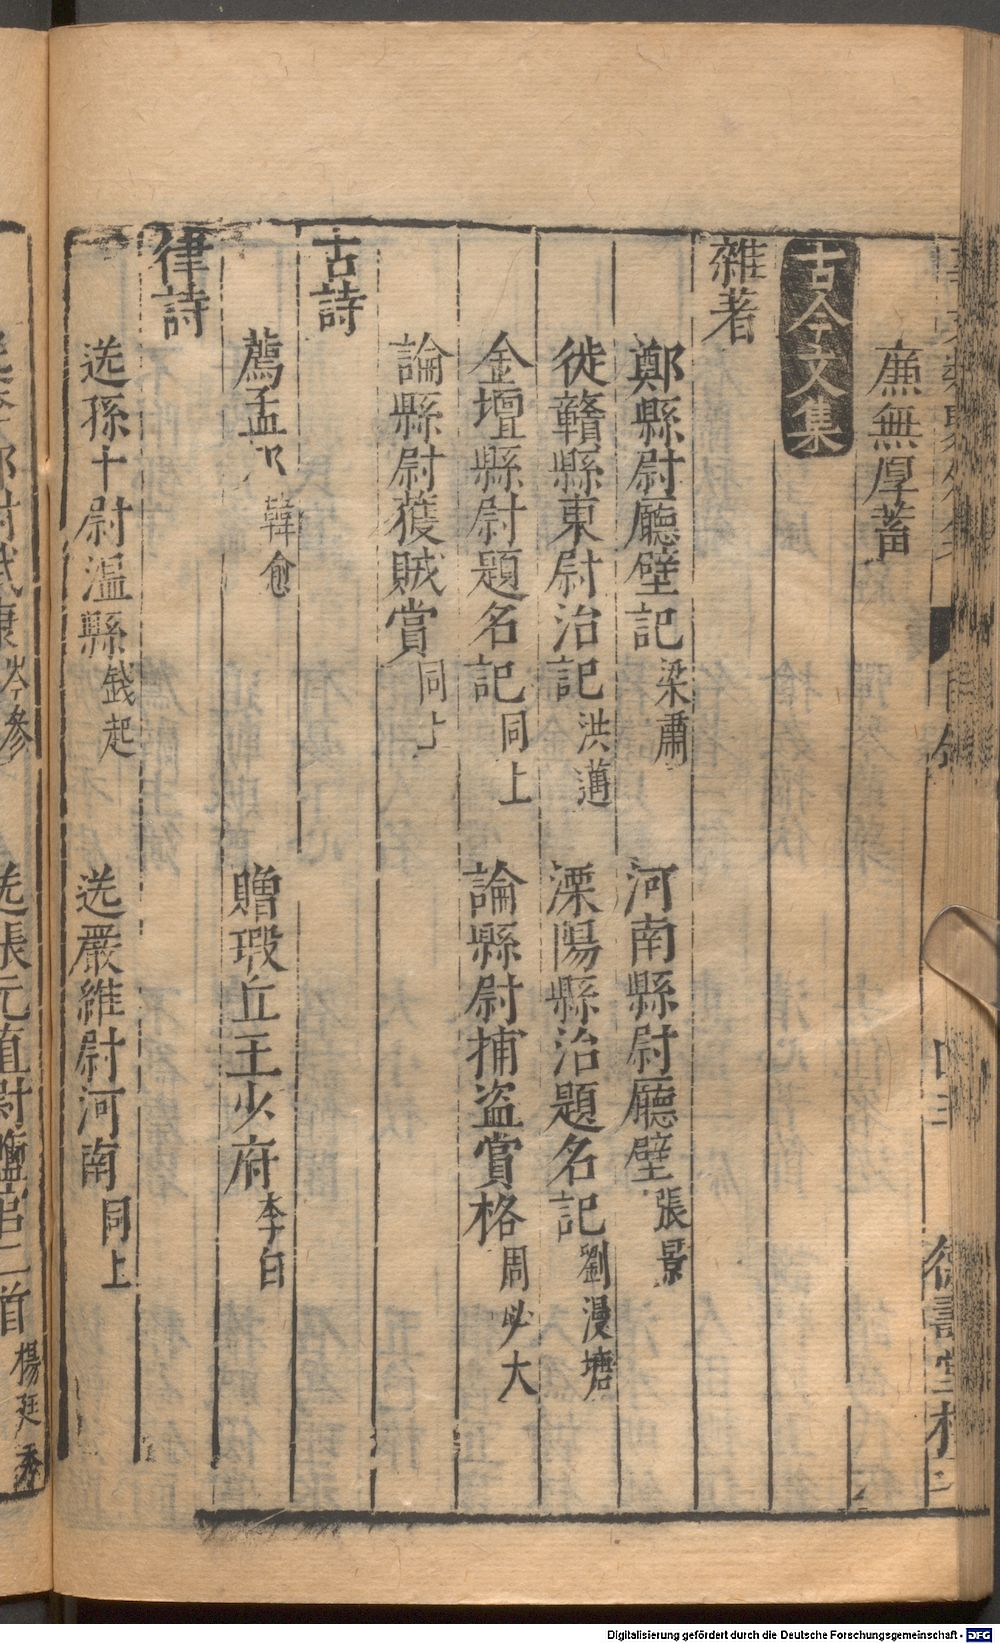 廉無厚蓄
古今文集
雜著
鄭縣尉廳壁記 梁肅 河南縣尉廳壁 張景
徙贛縣東尉治記 洪邁 溧陽縣治題名記 劉漫塘
金壇縣尉題名記 同上 論縣尉捕盗賞格 周必大
論縣尉獲賊賞 同上
古詩
薦孟郊 韓愈 贈瑕丘王少府 李白
律詩
送孫十尉溫縣 錢起 送嚴維尉河南 同上
尉武康 岑參 送張元直尉鹽官二首 楊廷秀
Digitalisierung gefördert durch die Deutsche Forschungsgemeinschaft - DFG